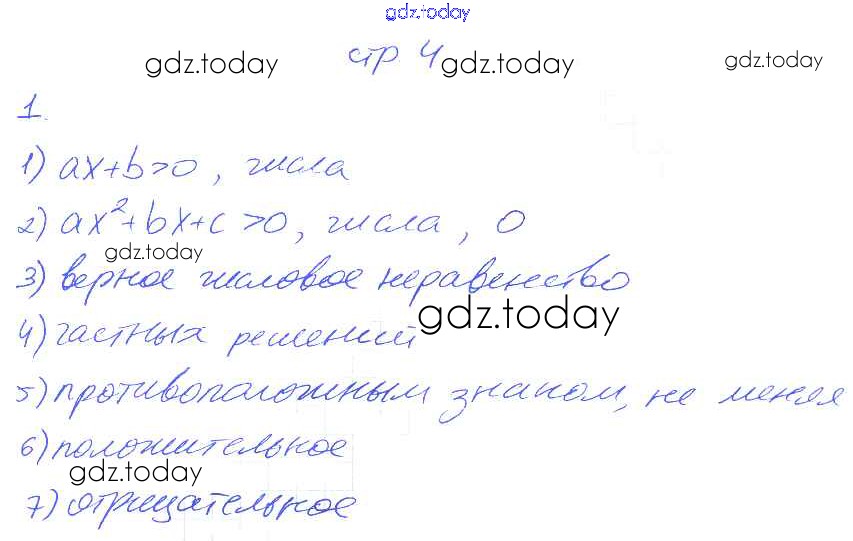 gdz.today
стр 4
gdz.today gdz.today gdz.today
1.
1) ax+b>0, числа
2) ax²+bx+c>0, числа, 0
gdz.today
3) верное числовое неравенство
gdz.today
4) частных решений
5) противоположным знаком, не меняя
6) положительное
gdz.today
7) отрицательное